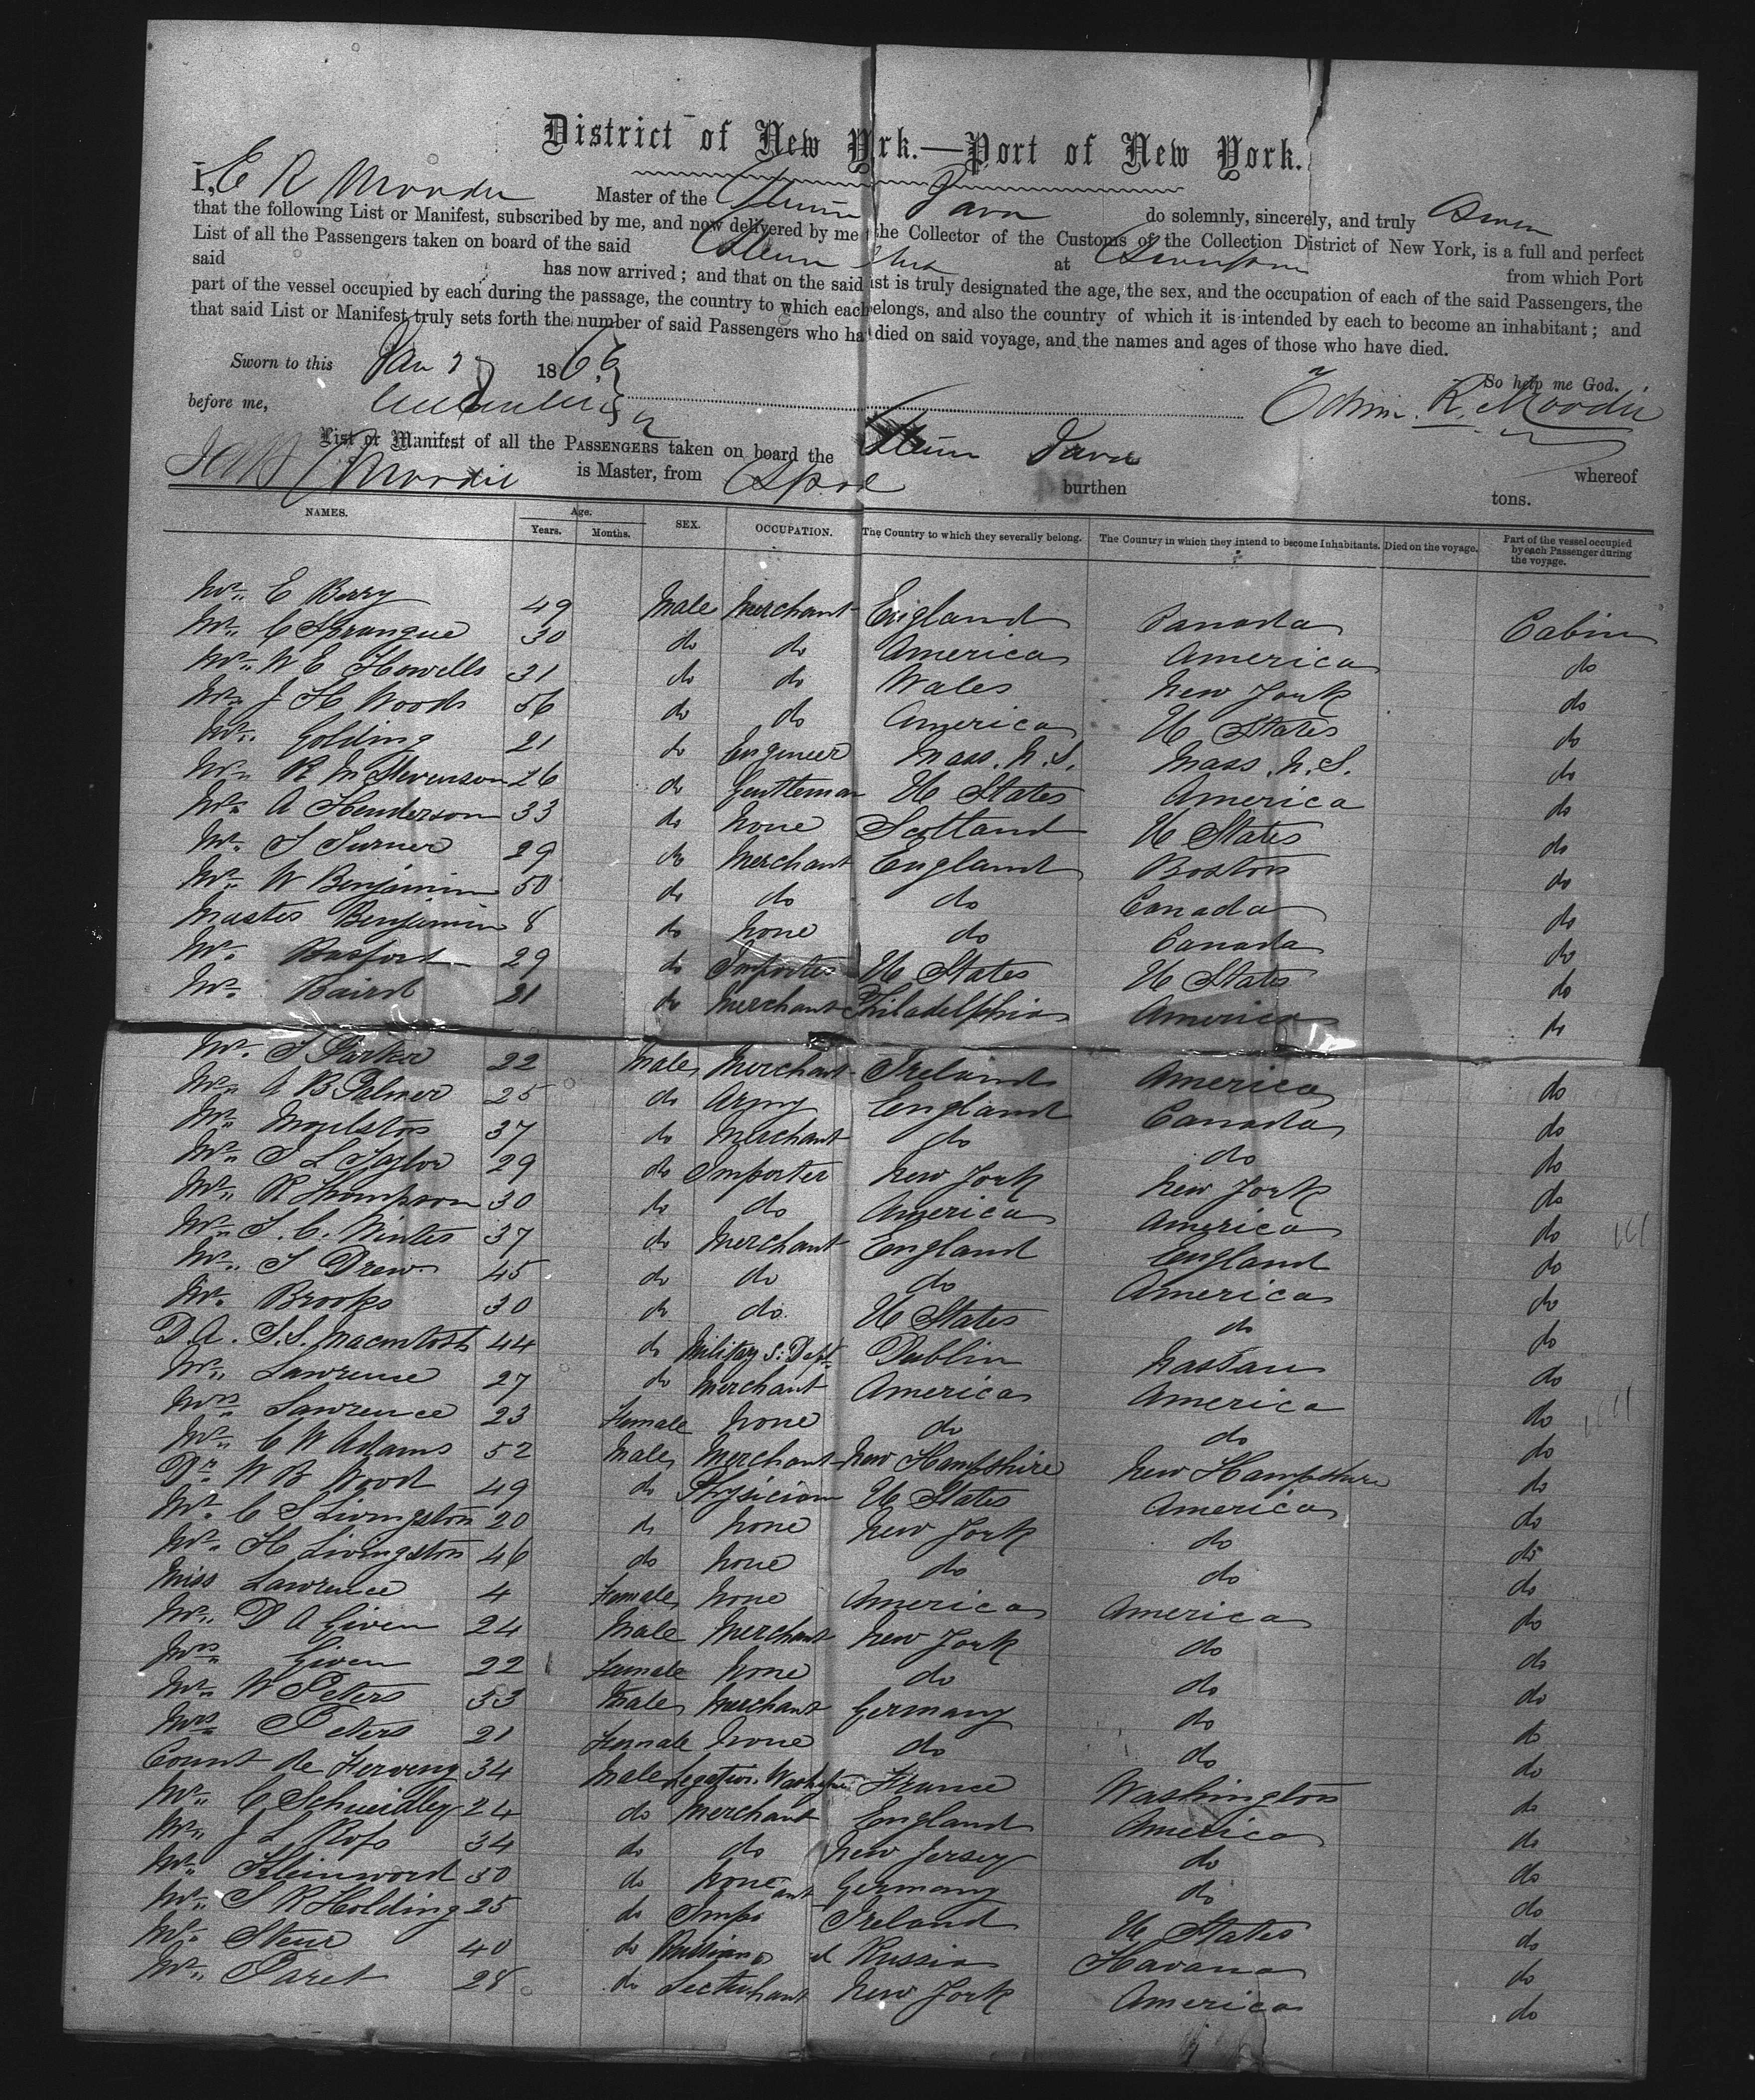 District of New York.—Port of New York.
I, E R Moodie Master of the Steam Java do solemnly, sincerely, and truly Swear
that the following List or Manifest, subscribed by me, and now delivered by me the Collector of the Customs of the Collection District of New York, is a full and perfect
List of all the Passengers taken on board of the said Steam at from which Port
said has now arrived; and that on the said ist is truly designated the age, the sex, and the occupation of each of the said Passengers, the
part of the vessel occupied by each during the passage, the country to which each elongs, and also the country of which it is intended by each to become an inhabitant; and
that said List or Manifest truly sets forth the number of said Passengers who ha died on said voyage, and the names and ages of those who have died.
So help me God.
Sworn to this Jan 1866
before me, Edwin. R. Moodie
List or Manifest of all the PASSENGERS taken on board the Steam Java whereof
Moodie is Master, from Lpool burthen tons.
NAMES. Age. Years. Months. SEX. OCCUPATION. The Country to which they severally belong. The Country in which they intend to become Inhabitants. Died on the voyage. Part of the vessel occupied by each Passenger during the voyage.
Mr. E Berry 49 Male Merchant England Canada Cabin
Mr. C Sprangue 30 do do America America do
Mr. W E Howells 31 do do Wales New York do
Mr. J H Woods 56 do do America U States do
Mr. Golding 21 do Engineer Mass. N.S. Mass. N.S. do
Mr. R M Stevenson 26 do Gentleman U States America do
Mr. A Henderson 33 do None Scotland U States do
Mr. T Turner 29 do Merchant England Boston do
Mr. W Benjamin 50 do do do Canada do
Master Benjamin 8 do None do Canada do
Mr. Basfort 29 do Importer U States U States do
Mr. Baird 21 do Merchant Philadelphia America do
Mr. T Parker 22 Male Merchant Ireland America do
Mr. A B Palmer 25 do Army England Canada do
Mr. 37 do Merchant do do do
Mr. S L Taylor 29 do Importer New York New York do
Mr. R Thompson 30 do do America America do
Mr. T. C. Winter 37 do Merchant England England do
Mr. T Drew 45 do do do America do
Mr. Brooks 30 do do. U States do do
D.A. S.S. Macintosh 44 do Military S: Dept. Dublin Nassau do
Mr. Lawrence 27 do Merchant America America do
Mrs. Lawrence 23 Female None do do do
Mr. C W Adams 52 Male Merchant New Hampshire New Hampshire do
Dr. W B Wood 49 do Physician U States America do
Mr. C S Livingston 20 do None New York do do
Mr. H Livingston 46 do None do do do
Miss Lawrence 4 Female None America America do
Mr. D A Given 24 Male Merchant New York do do
Mrs. Given 22 Female None do do do
Mr. W Peters 33 Male Merchant Germany do do
Mrs. Peters 21 Female None do do do
Count de 34 Male Legation. France Washington do
Mr. C Schneidley 24 do Merchant England America do
Mr. J L Rofs 34 do do New Jersey do do
Mr. Kleinword 30 do None Germany do do
Mr. S R Holding 25 do Impo ant Ireland U States do
Mr. Steur 40 do Russia Havana do
Mr. Paret 28 do hant New York America do